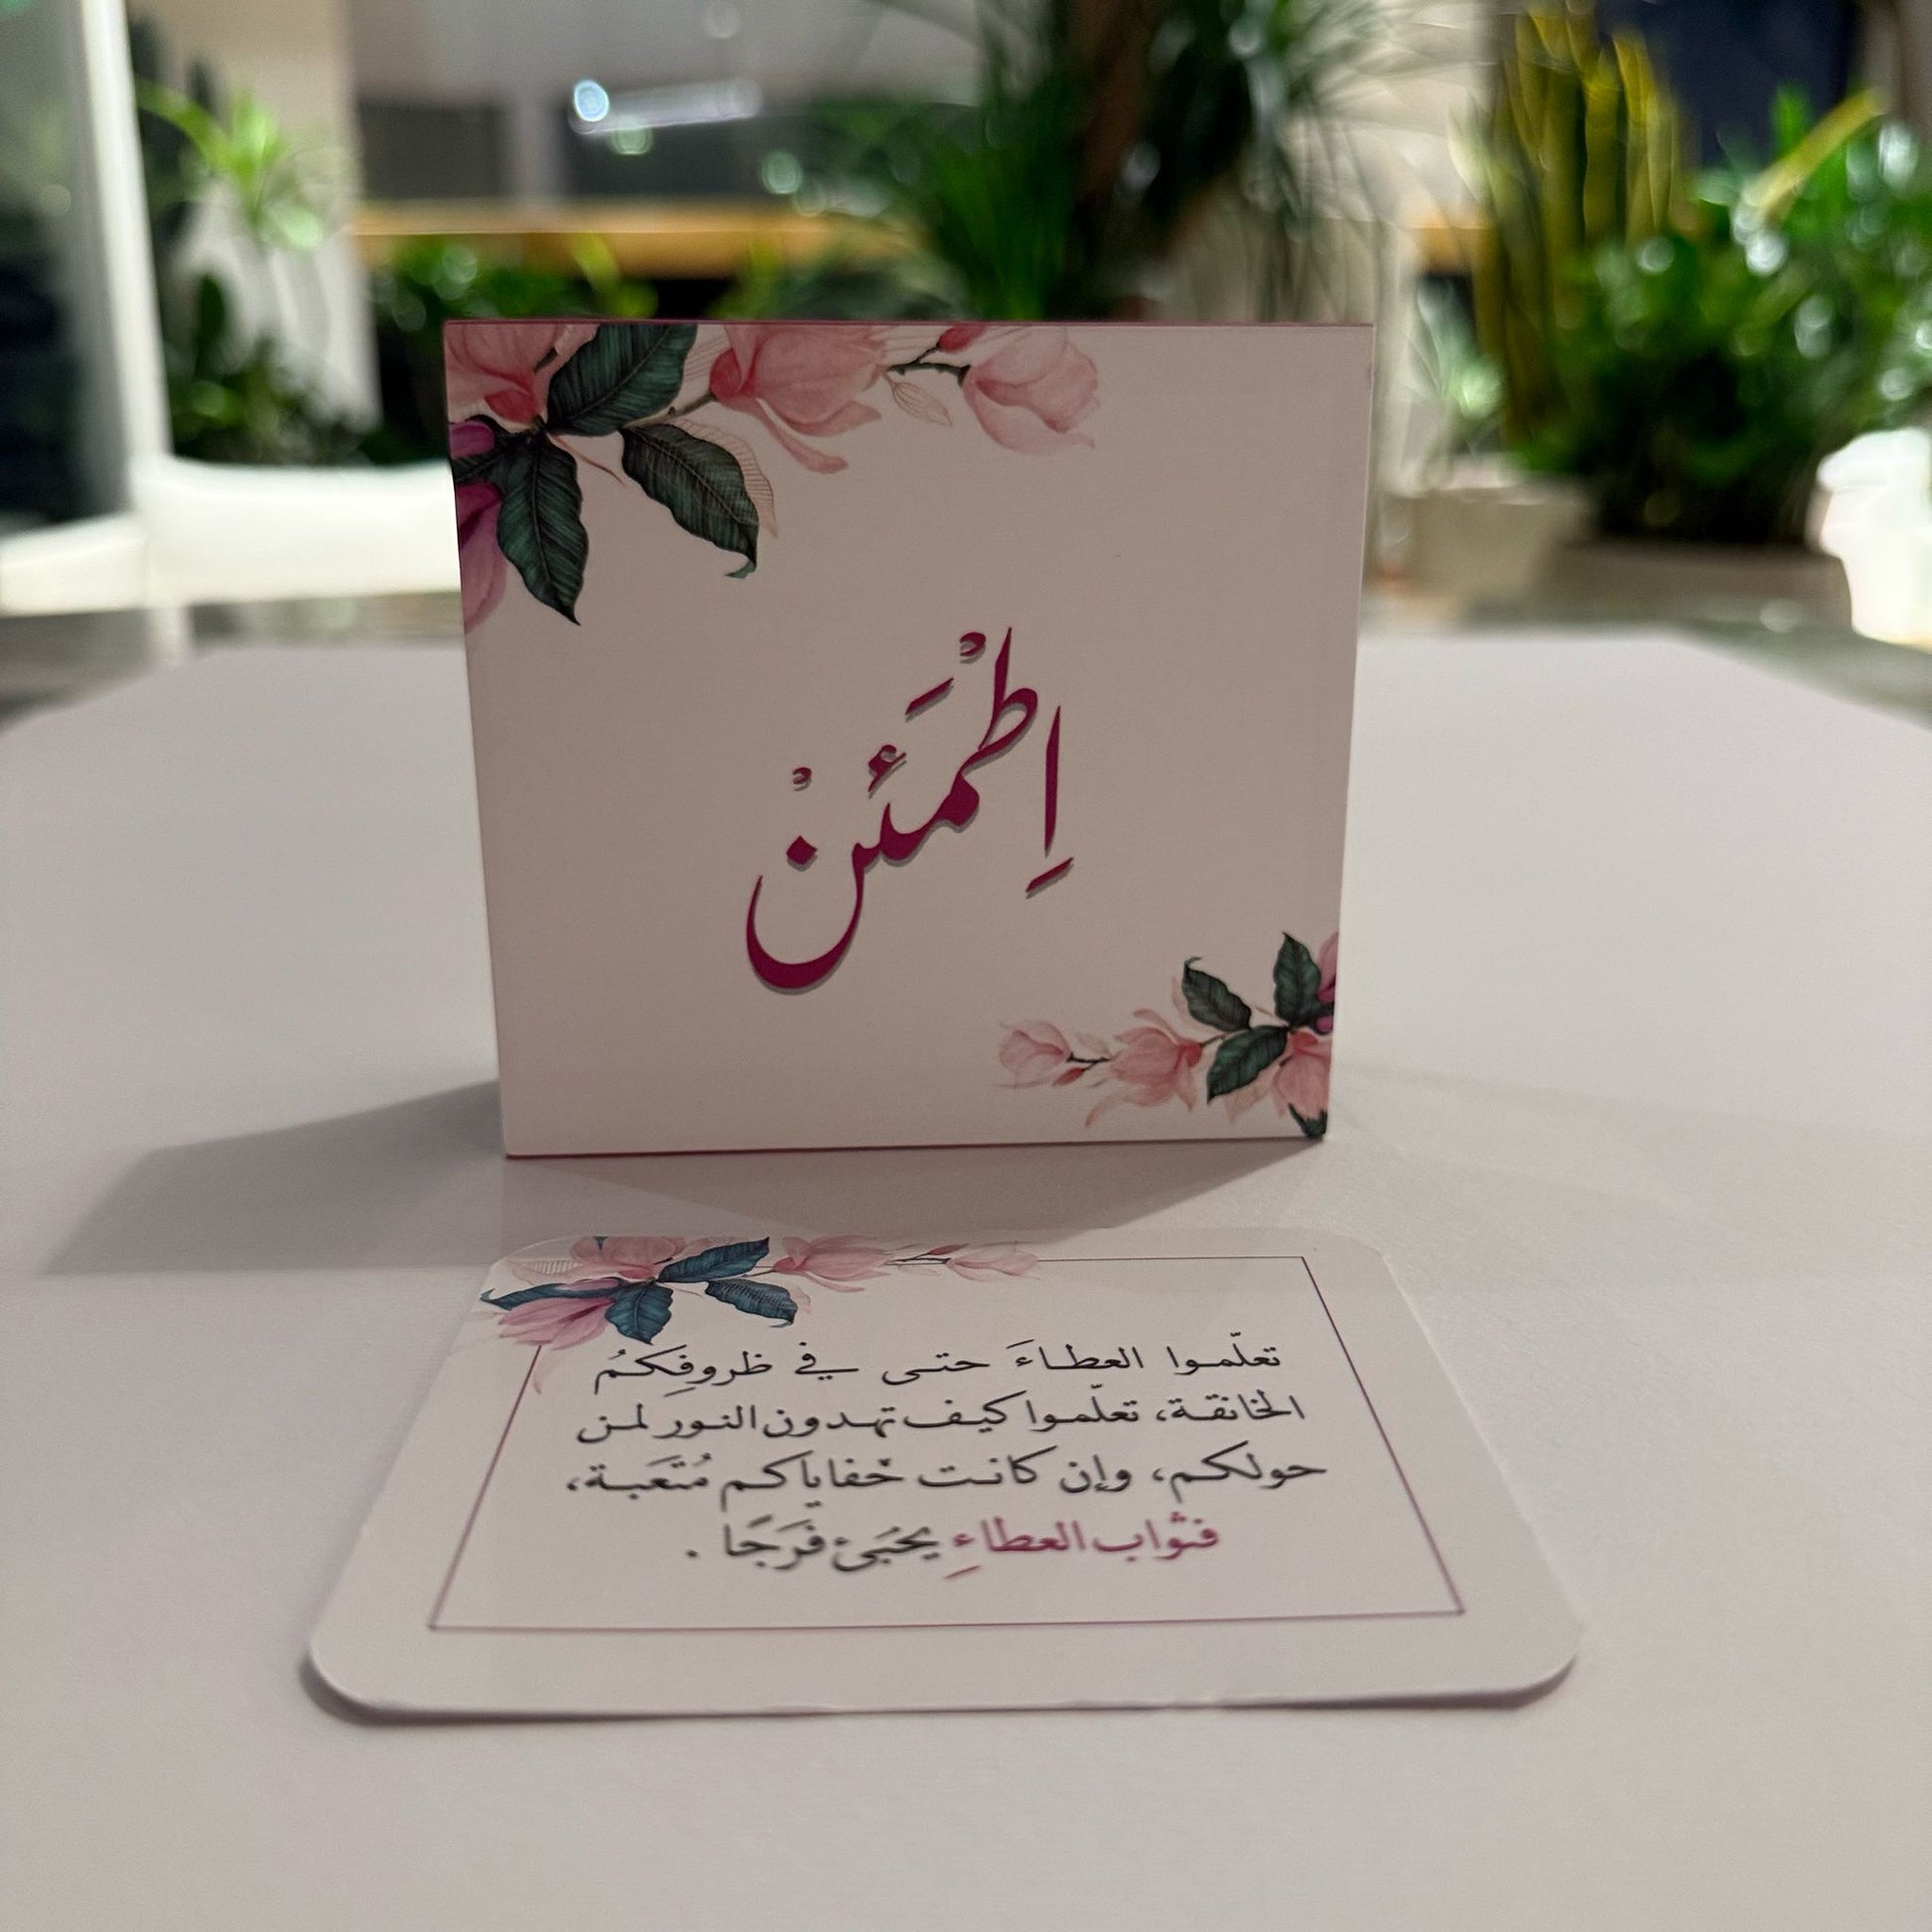 اِطْمَئِنْ
تعلّموا العطاءَ حتى في ظروفِكمُ
الخانقة، تعلّموا كيف تهدون النور لمن
حولكم، وإن كانت خفاياكم مُتعَبة،
فثواب العطاءِ يجَيئ فَرَجًا .